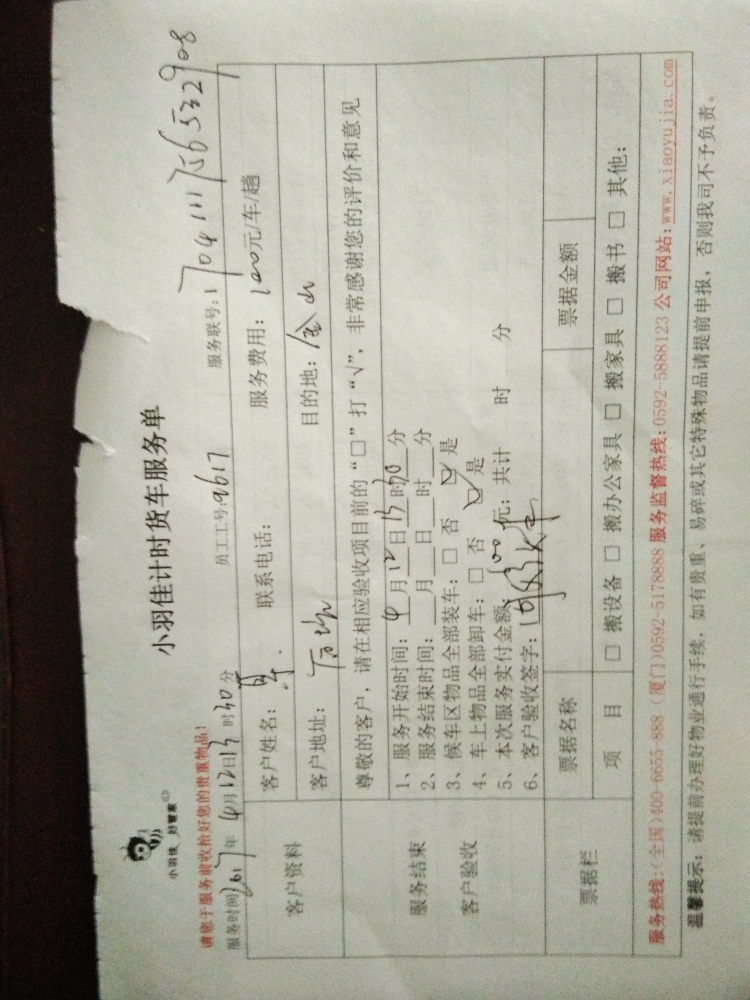 小羽佳 好管家
小羽佳计时货车服务单
请您于服务前收拾好您的贵重物品!
服务时间2017年4月12日13时30分 员工工号:9617 服务联号:
客户资料
客户姓名: 联系电话: 服务费用:100元/车/趟
客户地址: 目的地:金山
服务结束
客户验收
尊敬的客户,请在相应验收项目前的“□”打“√”,非常感谢您的评价和意见
1、服务开始时间:4月12日13时30分
2、服务结束时间:___月___日___时___分
3、候车区物品全部装车:□ 否 ☑ 是
4、车上物品全部卸车:□ 否 ☑ 是
5、本次服务实付金额:100元;共计 时 分
6、客户验收签字:
票据栏
票据名称 票据金额
项 目 □ 搬设备 □ 搬办公家具 □ 搬家具 □ 搬书 □ 其他:
服务热线:(全国)400-6655-888 (厦门)0592-5178888 服务监督热线:0592-5888123 公司网站:www.xiaoyujia.com
温馨提示:请提前办理好物业通行手续,如有贵重、易碎或其它特殊物品请提前申报,否则我司不予负责。